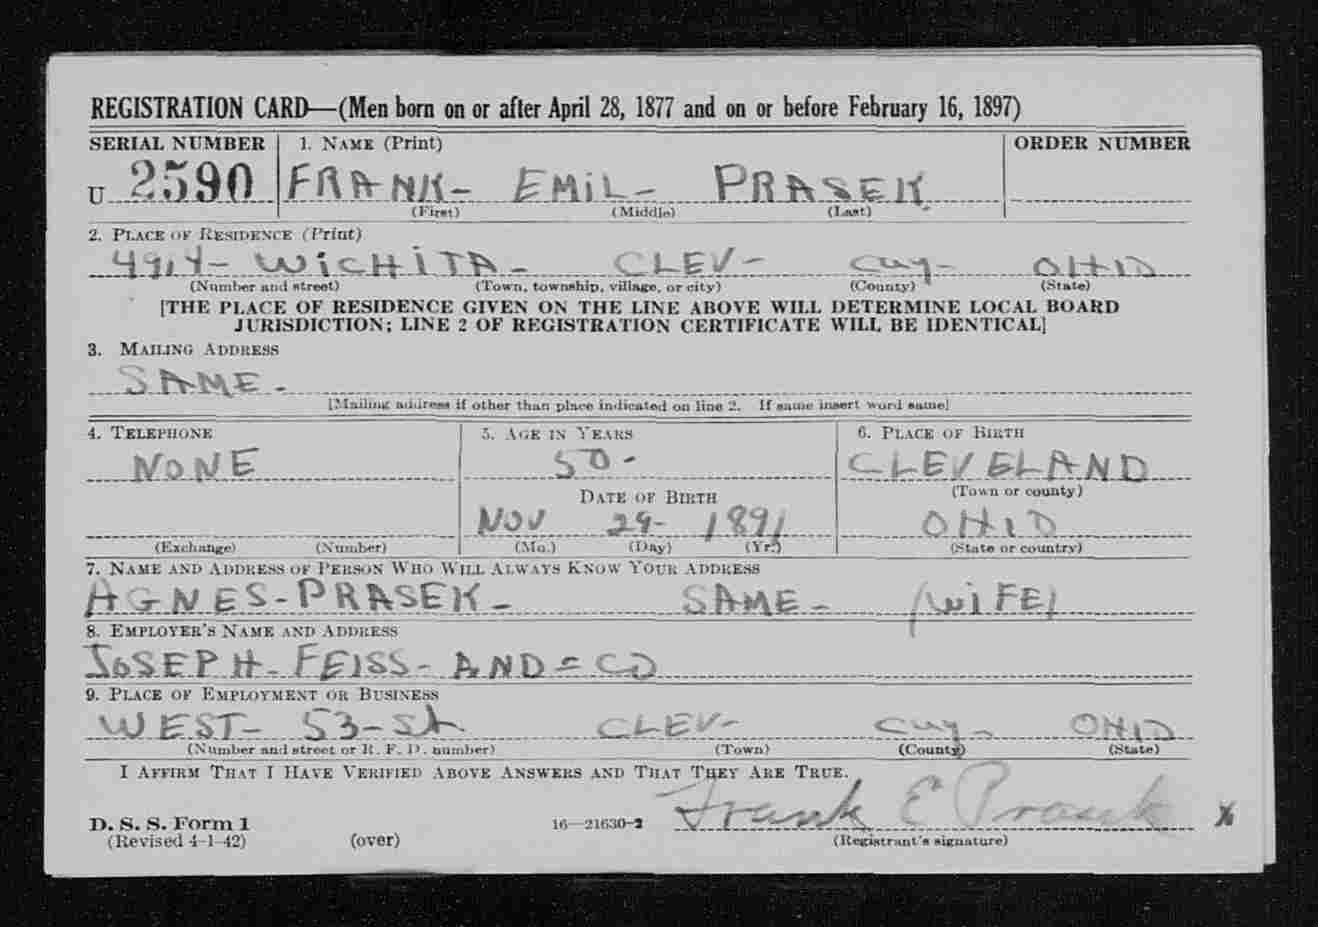 REGISTRATION CARD—(Men born on or after April 28, 1877 and on or before February 16, 1897)
SERIAL NUMBER 1. NAME (Print) ORDER NUMBER
U 2590 FRANK- EMIL- PRASEK
(First) (Middle) (Last)
2. PLACE OF RESIDENCE (Print)
4914- WICHITA- CLEV- Cuy- OHIO
(Number and street) (Town, township, village, or city) (County) (State)
[THE PLACE OF RESIDENCE GIVEN ON THE LINE ABOVE WILL DETERMINE LOCAL BOARD
JURISDICTION; LINE 2 OF REGISTRATION CERTIFICATE WILL BE IDENTICAL]
3. MAILING ADDRESS
SAME-
[Mailing address if other than place indicated on line 2. If same insert word same]
4. TELEPHONE 5. AGE IN YEARS 6. PLACE OF BIRTH
NONE 50- CLEVELAND
(Town or county)
DATE OF BIRTH
NOV 29- 1891 OHIO
(Exchange) (Number) (Mo.) (Day) (Yr.) (State or country)
7. NAME AND ADDRESS OF PERSON WHO WILL ALWAYS KNOW YOUR ADDRESS
AGNES-PRASEK- SAME- (WIFE)
8. EMPLOYER'S NAME AND ADDRESS
JOSEPH-FEISS-AND=CO
9. PLACE OF EMPLOYMENT OR BUSINESS
WEST- 53-St CLEV- Cuy- OHIO
(Number and street or R. F. D. number) (Town) (County) (State)
I AFFIRM THAT I HAVE VERIFIED ABOVE ANSWERS AND THAT THEY ARE TRUE.
Frank E Prasek
D. S. S. Form 1 16—21630-2
(Revised 4-1-42) (over) (Registrant's signature)